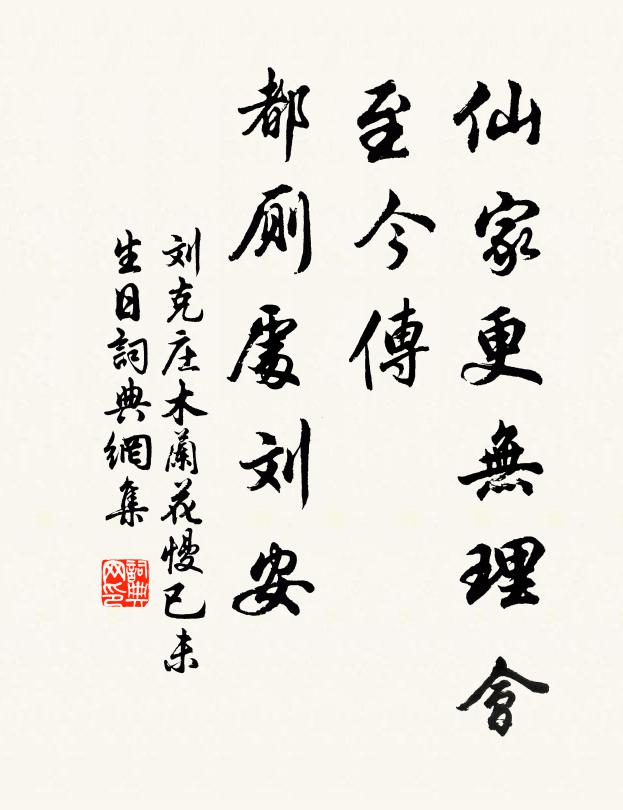 仙家更無理會
至今傳
都厠處刘安
刘克庄木蘭花慢已未
生日詞典網集
詞典
网印